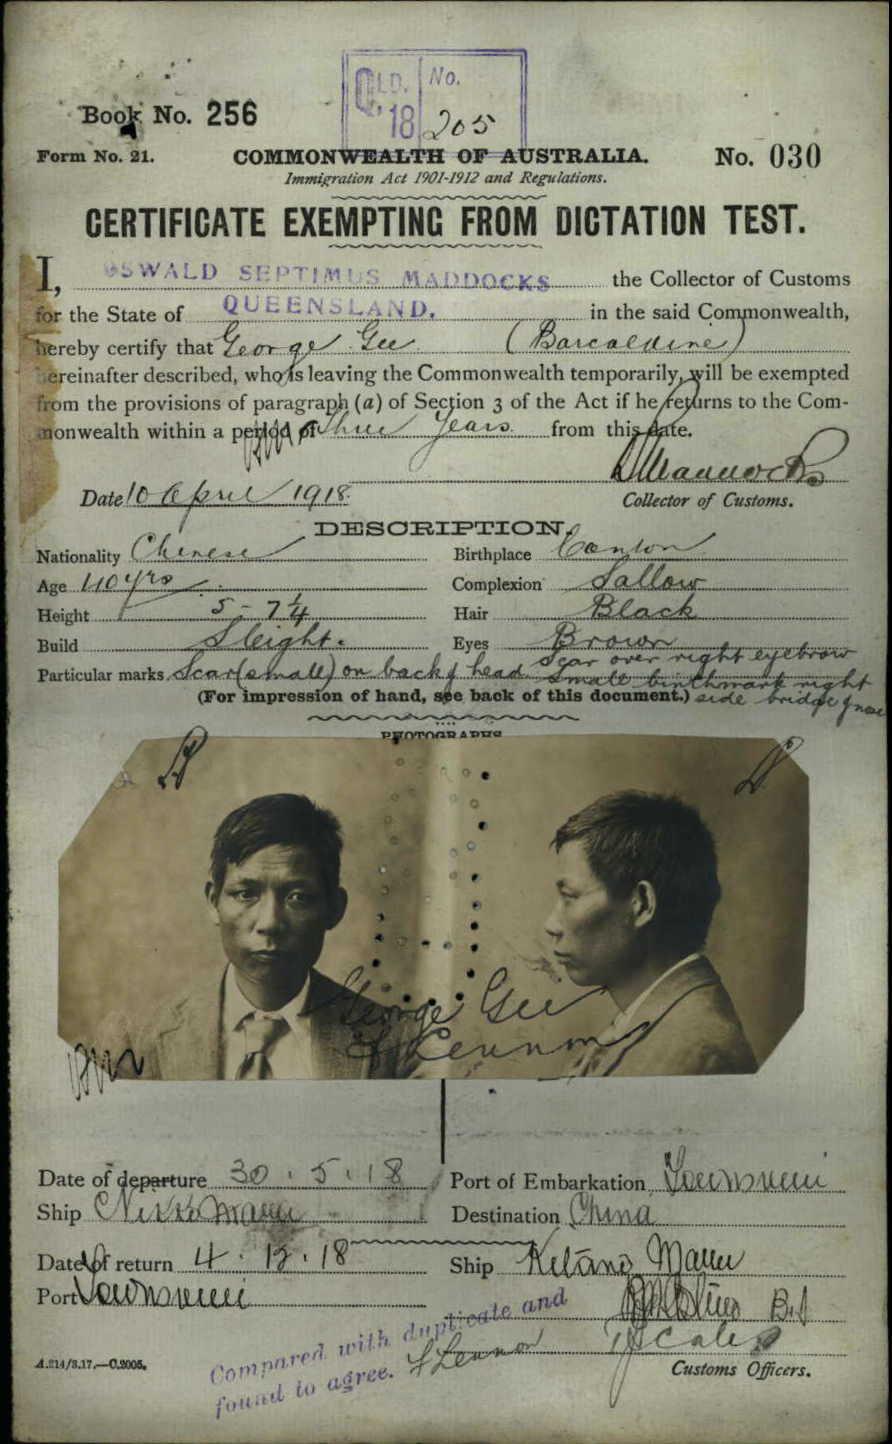 QLD. No.
18 205
Book No. 256
Form No. 21. COMMONWEALTH OF AUSTRALIA. No. 030
Immigration Act 1901-1912 and Regulations.
CERTIFICATE EXEMPTING FROM DICTATION TEST.
I, OSWALD SEPTIMUS MADDOCKS the Collector of Customs
for the State of QUEENSLAND. in the said Commonwealth,
hereby certify that George Gee (Barcaldine)
hereinafter described, who is leaving the Commonwealth temporarily, will be exempted
from the provisions of paragraph (a) of Section 3 of the Act if he returns to the Com-
monwealth within a period of Three Years from this date.
Date 10 April 1918 Collector of Customs.
DESCRIPTION.
Nationality Chinese Birthplace Canton
Age 40 yrs Complexion Sallow
Height 5 - 7 1/4 Hair Black
Build Sleight. Eyes Brown
Particular marks Scar (small) on back of head Scar over right eyebrow
small birthmark right
(For impression of hand, see back of this document.) side bridge of nose
PHOTOGRAPHS
George Gee
J Lennon
Date of departure 30.5.18 Port of Embarkation Townsville
Ship Nikko Maru Destination China
Date of return 4.12.18 Ship Kitano Maru
Port Townsville
Compared with duplicate and
found to agree. J Lennon
A.214/3.17.—C.2005. Customs Officers.